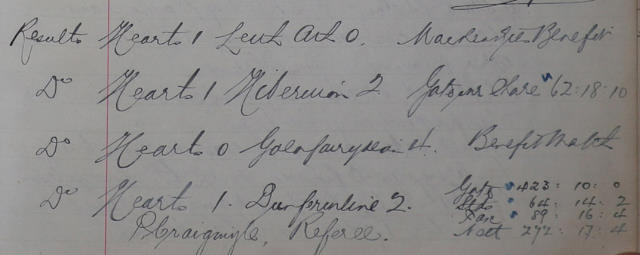 Results Hearts 1 Leith Ath 0. Mackenzie's Benefit
Do Hearts 1 Hibernian 2 Gate our Share 62:18:10
Do Hearts 0 Galafairydean 4. Benefit Match
Do Hearts 1. Dunfermline 2. Gate 423: 10: 0
64: 14: 2
89: 16: 4
P. Craigmyle, Referee. Nett 272: 17: 4